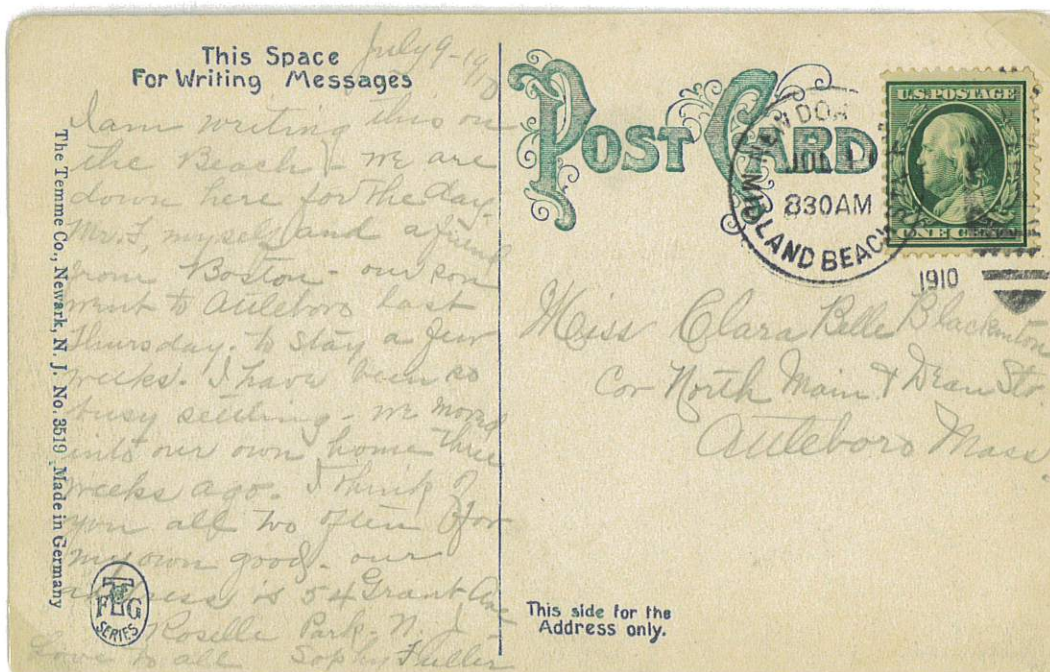 This Space
For Writing Messages
July 9-1910
I am writing this on
the Beach - we are
down here for the day-
Mr. F, myself and a friend
from Boston - our son
went to Attleboro last
Thursday. to stay a few
weeks. I have been so
busy settling - we moved
into our own home three
weeks ago. I think of
you all too often for
my own good. our
address is 54 Grant Ave
Roselle Park - N. J -
Love to all Sophy Fuller
The Temme Co., Newark, N. J. No. 3519 Made in Germany
FTG
SERIES
POST CARD
NEW DO
JUL
830AM
MIDLAND BEACH
1910
U.S. POSTAGE
ONE CENT
Miss Clara Belle Blackinton
Cor North Main & Dean Sts.
Attleboro Mass.
This side for the
Address only.